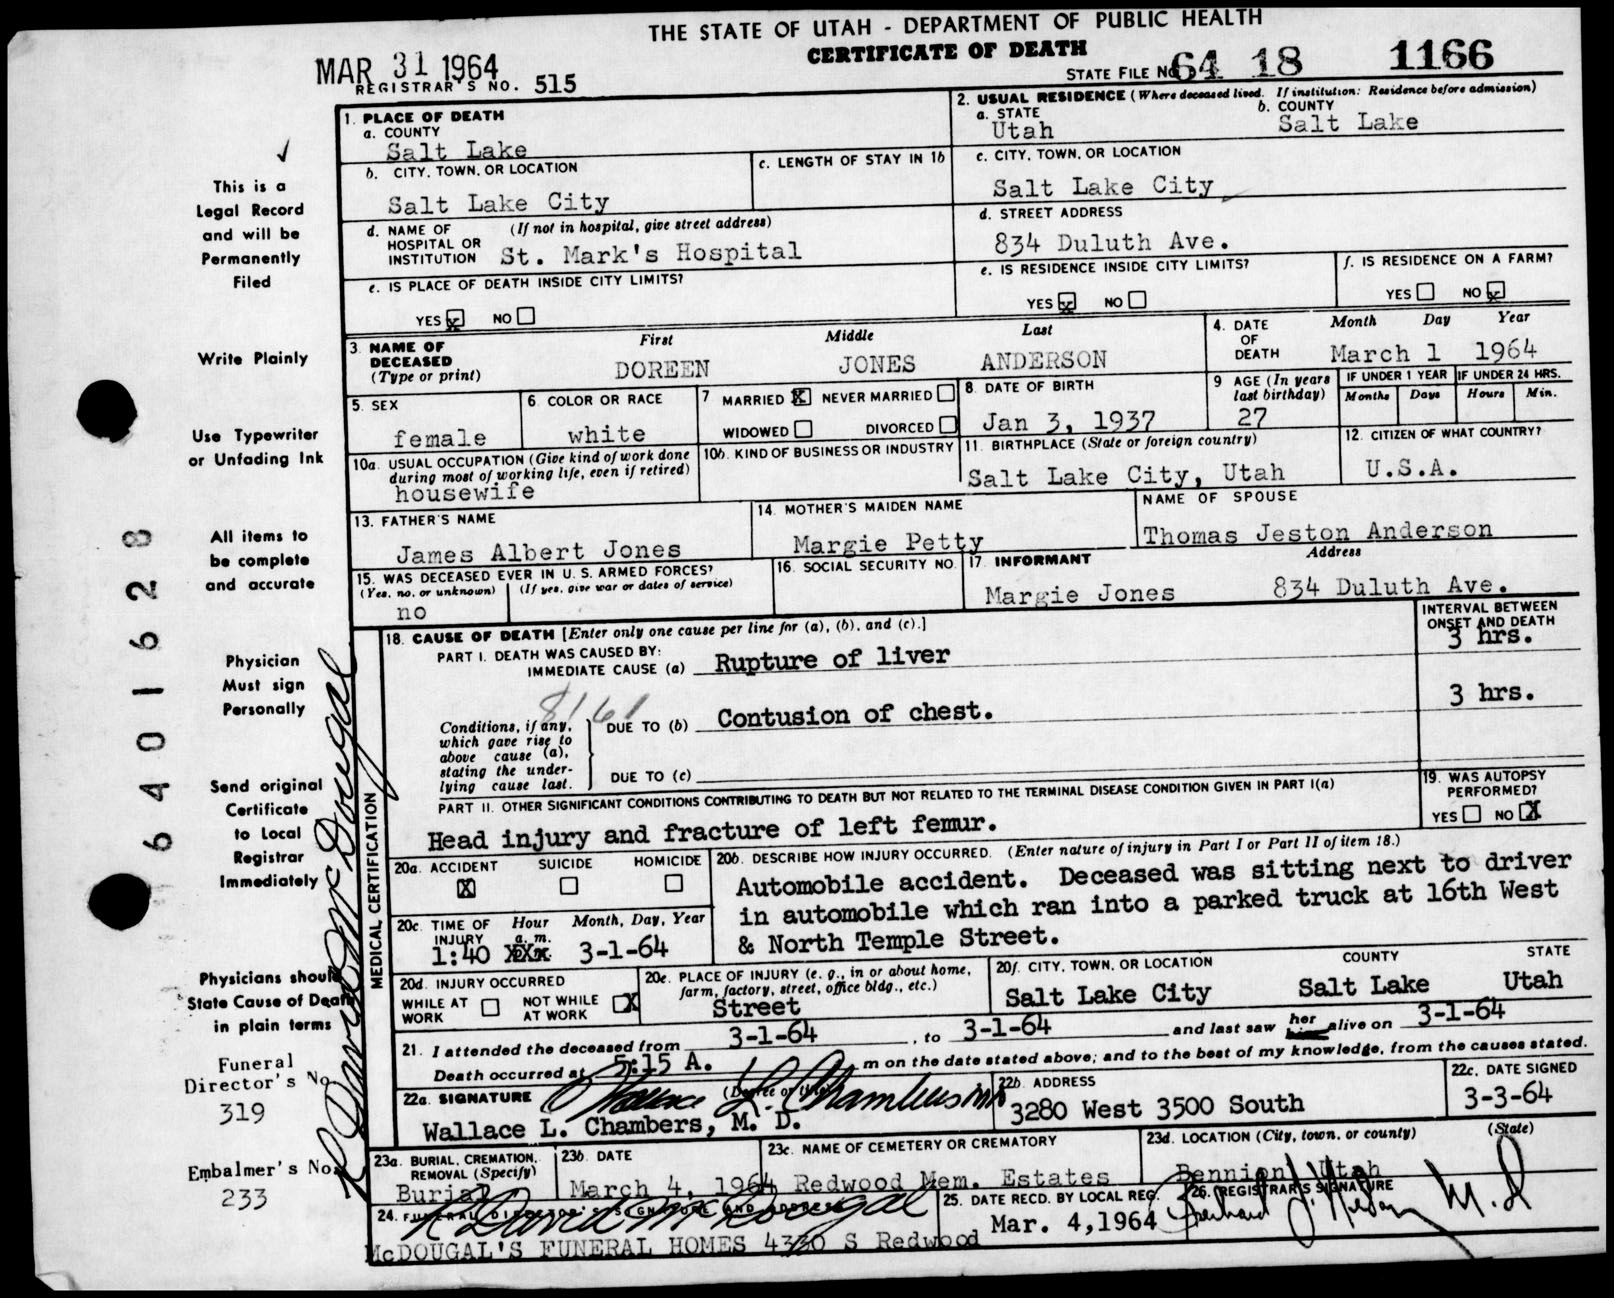 THE STATE OF UTAH - DEPARTMENT OF PUBLIC HEALTH
CERTIFICATE OF DEATH
MAR 31 1964
REGISTRAR'S NO. 515
STATE FILE NO. 64 18 1166
This is a
Legal Record
and will be
Permanently
Filed
Write Plainly
Use Typewriter
or Unfading Ink
All items to
be complete
and accurate
Physician
Must sign
Personally
Send original
Certificate
to Local
Registrar
Immediately
Physicians should
State Cause of Death
in plain terms
Funeral
Director's No
319
Embalmer's No.
233
6401628
R David McDougal
1. PLACE OF DEATH
a. COUNTY
Salt Lake
b. CITY, TOWN, OR LOCATION
Salt Lake City
c. LENGTH OF STAY IN 1b
d. NAME OF HOSPITAL OR INSTITUTION (If not in hospital, give street address)
St. Mark's Hospital
e. IS PLACE OF DEATH INSIDE CITY LIMITS?
YES x NO
2. USUAL RESIDENCE (Where deceased lived. If institution: Residence before admission)
a. STATE
Utah
b. COUNTY
Salt Lake
c. CITY, TOWN, OR LOCATION
Salt Lake City
d. STREET ADDRESS
834 Duluth Ave.
e. IS RESIDENCE INSIDE CITY LIMITS?
YES x NO
f. IS RESIDENCE ON A FARM?
YES NO x
3. NAME OF DECEASED (Type or print)
First Middle Last
DOREEN JONES ANDERSON
4. DATE OF DEATH
Month Day Year
March 1 1964
5. SEX
female
6. COLOR OR RACE
white
7 MARRIED X NEVER MARRIED
WIDOWED DIVORCED
8. DATE OF BIRTH
Jan 3, 1937
9 AGE (In years last birthday)
27
IF UNDER 1 YEAR IF UNDER 24 HRS.
Months Days Hours Min.
10a. USUAL OCCUPATION (Give kind of work done during most of working life, even if retired)
housewife
10b. KIND OF BUSINESS OR INDUSTRY
11. BIRTHPLACE (State or foreign country)
Salt Lake City, Utah
12. CITIZEN OF WHAT COUNTRY?
U.S.A.
13. FATHER'S NAME
James Albert Jones
14. MOTHER'S MAIDEN NAME
Margie Petty
NAME OF SPOUSE
Thomas Jeston Anderson
15. WAS DECEASED EVER IN U. S. ARMED FORCES?
(Yes, no, or unknown) (If yes, give war or dates of service)
no
16. SOCIAL SECURITY NO.
17. INFORMANT Address
Margie Jones 834 Duluth Ave.
MEDICAL CERTIFICATION
18. CAUSE OF DEATH [Enter only one cause per line for (a), (b), and (c).]
INTERVAL BETWEEN ONSET AND DEATH
PART I. DEATH WAS CAUSED BY:
IMMEDIATE CAUSE (a) Rupture of liver 3 hrs.
8161
Conditions, if any, which gave rise to above cause (a), stating the underlying cause last.
DUE TO (b) Contusion of chest. 3 hrs.
DUE TO (c)
PART II. OTHER SIGNIFICANT CONDITIONS CONTRIBUTING TO DEATH BUT NOT RELATED TO THE TERMINAL DISEASE CONDITION GIVEN IN PART I(a)
Head injury and fracture of left femur.
19. WAS AUTOPSY PERFORMED?
YES NO X
20a. ACCIDENT SUICIDE HOMICIDE
X
20b. DESCRIBE HOW INJURY OCCURRED. (Enter nature of injury in Part I or Part II of item 18.)
Automobile accident. Deceased was sitting next to driver
in automobile which ran into a parked truck at 16th West
& North Temple Street.
20c. TIME OF INJURY Hour a. m. Month, Day, Year
1:40 3-1-64
20d. INJURY OCCURRED
WHILE AT WORK NOT WHILE AT WORK X
20e. PLACE OF INJURY (e. g., in or about home, farm, factory, street, office bldg., etc.)
Street
20f. CITY, TOWN, OR LOCATION COUNTY STATE
Salt Lake City Salt Lake Utah
21. I attended the deceased from 3-1-64, to 3-1-64 and last saw her alive on 3-1-64
Death occurred at 5:15 A. m on the date stated above; and to the best of my knowledge, from the causes stated.
22a. SIGNATURE (Degree or title)
Wallace L. Chambers MD
Wallace L. Chambers, M. D.
22b. ADDRESS
3280 West 3500 South
22c. DATE SIGNED
3-3-64
23a. BURIAL, CREMATION, REMOVAL (Specify)
Burial
23b. DATE
March 4, 1964
23c. NAME OF CEMETERY OR CREMATORY
Redwood Mem. Estates
23d. LOCATION (City, town, or county) (State)
Bennion, Utah
24. FUNERAL DIRECTOR'S SIGNATURE AND ADDRESS
R David McDougal
McDOUGAL'S FUNERAL HOMES 4330 S Redwood
25. DATE RECD. BY LOCAL REG.
Mar. 4,1964
26. REGISTRAR'S SIGNATURE
M.D